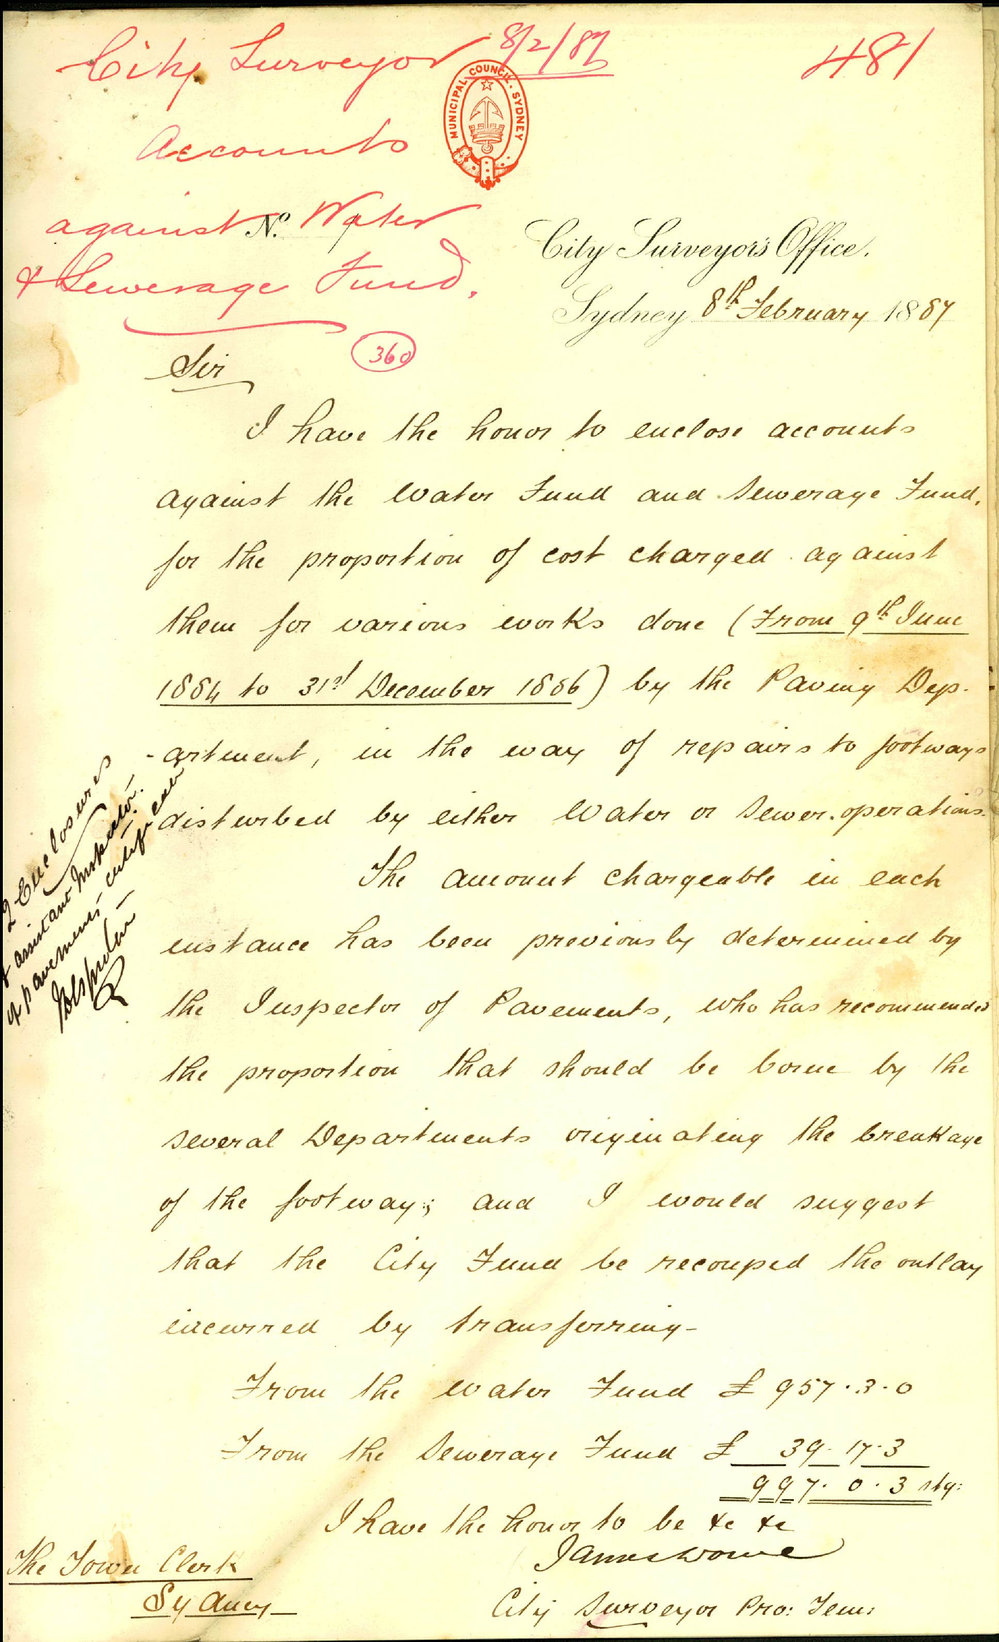 City Surveyor 8/2/87
481
MUNICIPAL COUNCIL. SYDNEY
Accounts
against Water
& Sewerage Fund.
No.
City Surveyor's Office.
Sydney 8th February 1887
360
Sir
I have the honor to enclose accounts
against the Water Fund and Sewerage Fund,
for the proportion of cost charged against
them for various works done (From 9th June
1884 to 31st December 1886) by the Paving Dep-
-artment, in the way of repairs to footways
disturbed by either Water or Sewer operations.
The amount chargeable in each
instance has been previously determined by
the Inspector of Pavements, who has recommended
the proportion that should be borne by the
several Departments originating the breakage
of the footway; and I would suggest
that the City Fund be recouped the outlay
incurred by transferring -
From the Water Fund £ 957. 3. 0
From the Sewerage Fund £ 39. 17. 3
997. 0. 3 stg:
I have the honor to be &c &c
James Wowe
City Surveyor Pro: Tem:
The Town Clerk
Sydney
2 Enclosures
& assistant Inspector
of pavements certificate